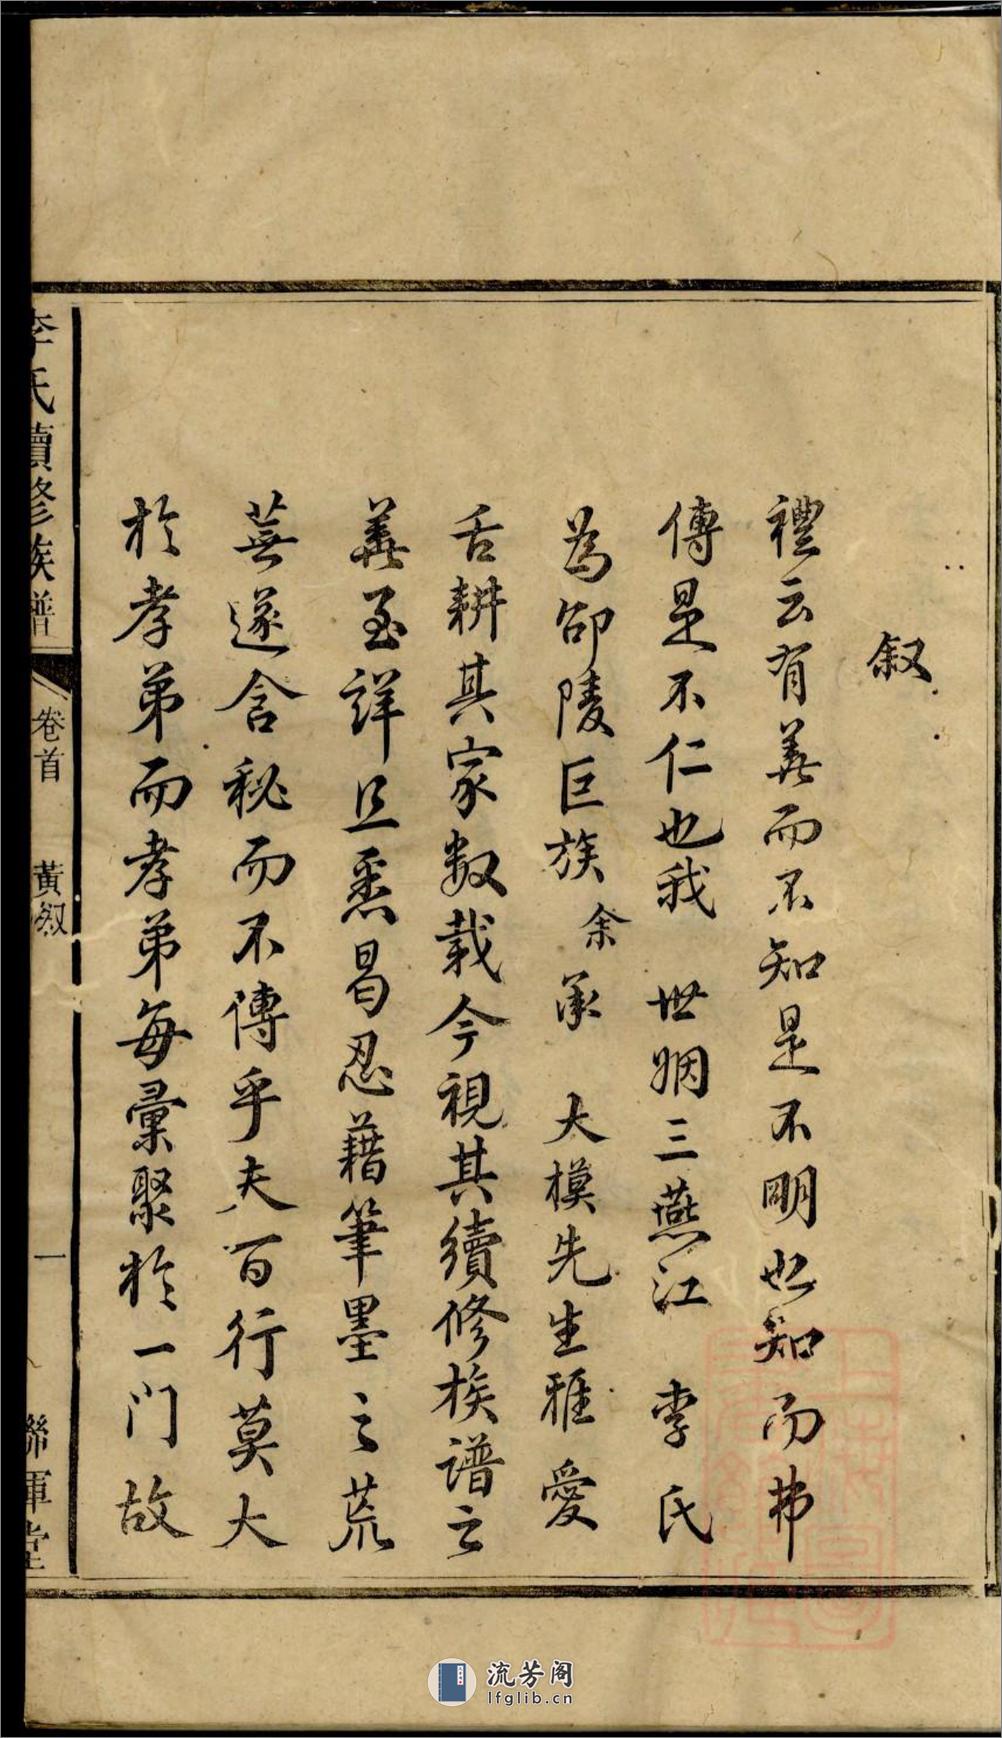 叙
禮云有善而不知是不明也知而弗
傳是不仁也我 世姻三燕江 李氏
為邵陵巨族 余承 大模先生雅愛
舌耕其家数载今視其續修族谱之
善至詳且悉曷忍藉筆墨之荒
蕪遂含秘而不傳乎夫百行莫大
於孝弟而孝弟每彙聚於一门故
李氏續修族譜
卷首 黃叙
一
聯軍堂
流芳阁
lfglib.cn